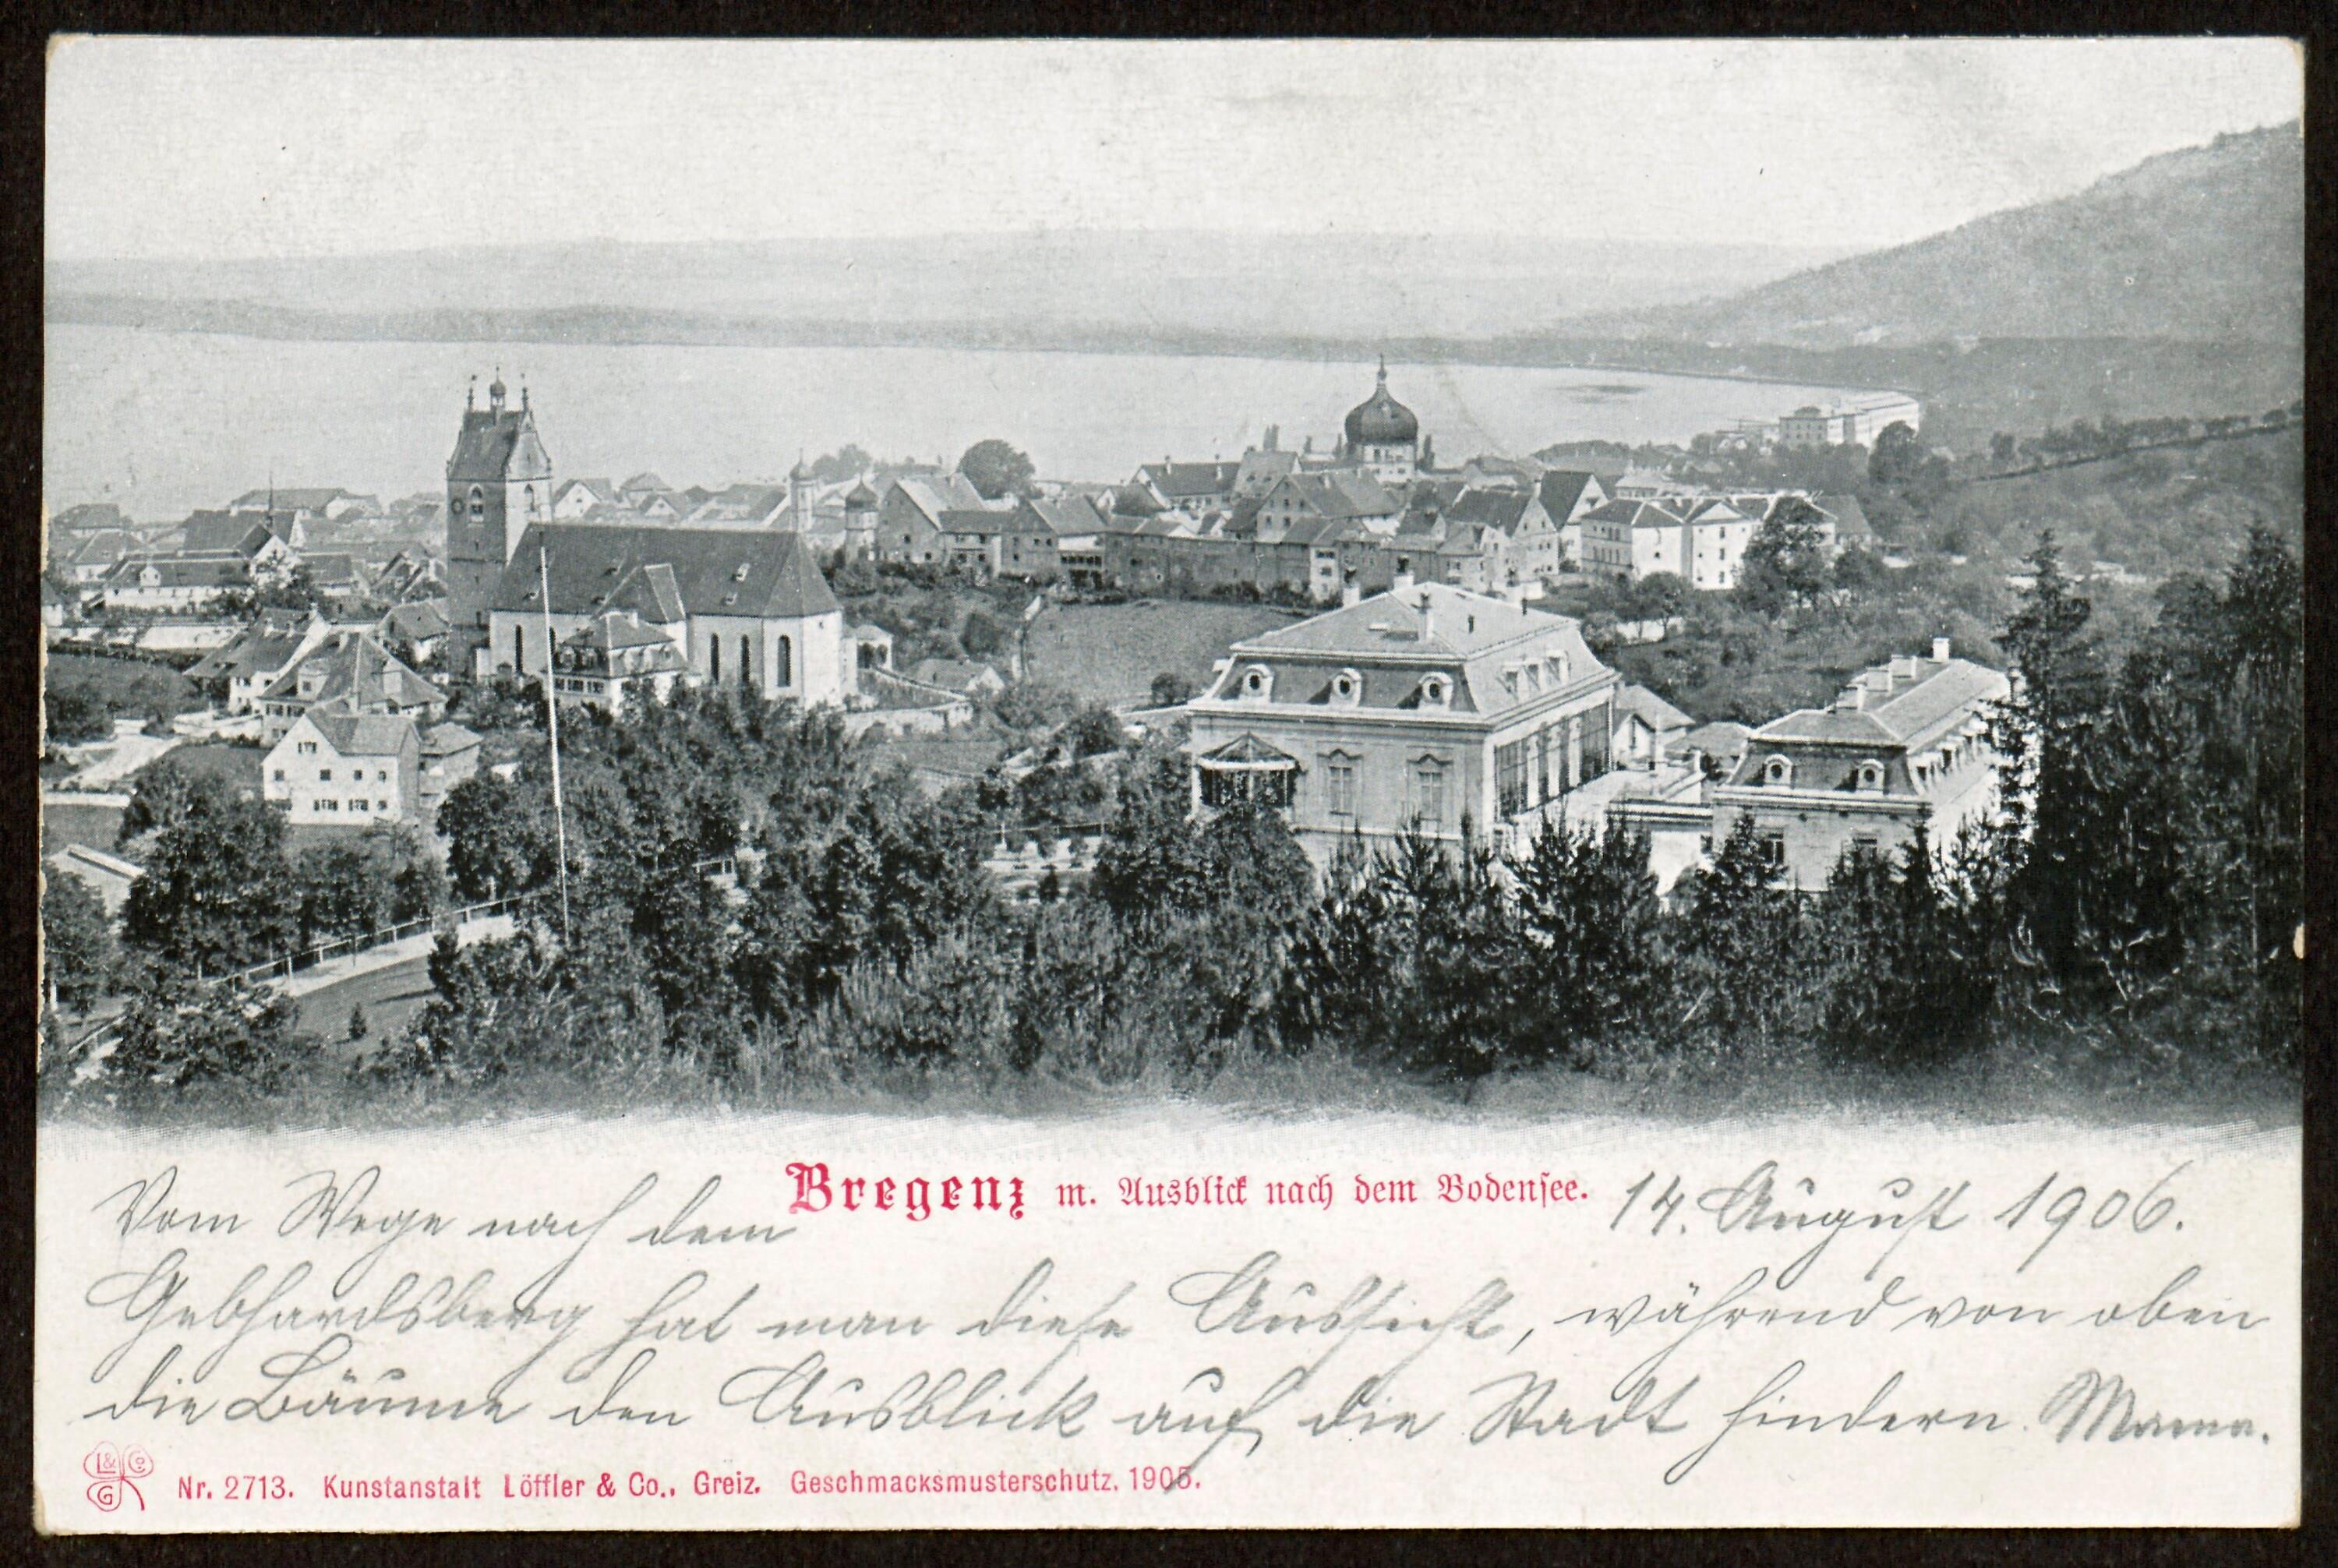 Bregenz m. Ausblick nach dem Bodensee.
14. August 1906.
Vom Wege nach dem
Gebhardsberg hat man diese Aussicht, während von oben
die Bäume den Ausblick auf die Stadt hindern. Mama.
L & Co G
Nr. 2713. Kunstanstalt Löffler & Co., Greiz. Geschmacksmusterschutz. 1905.